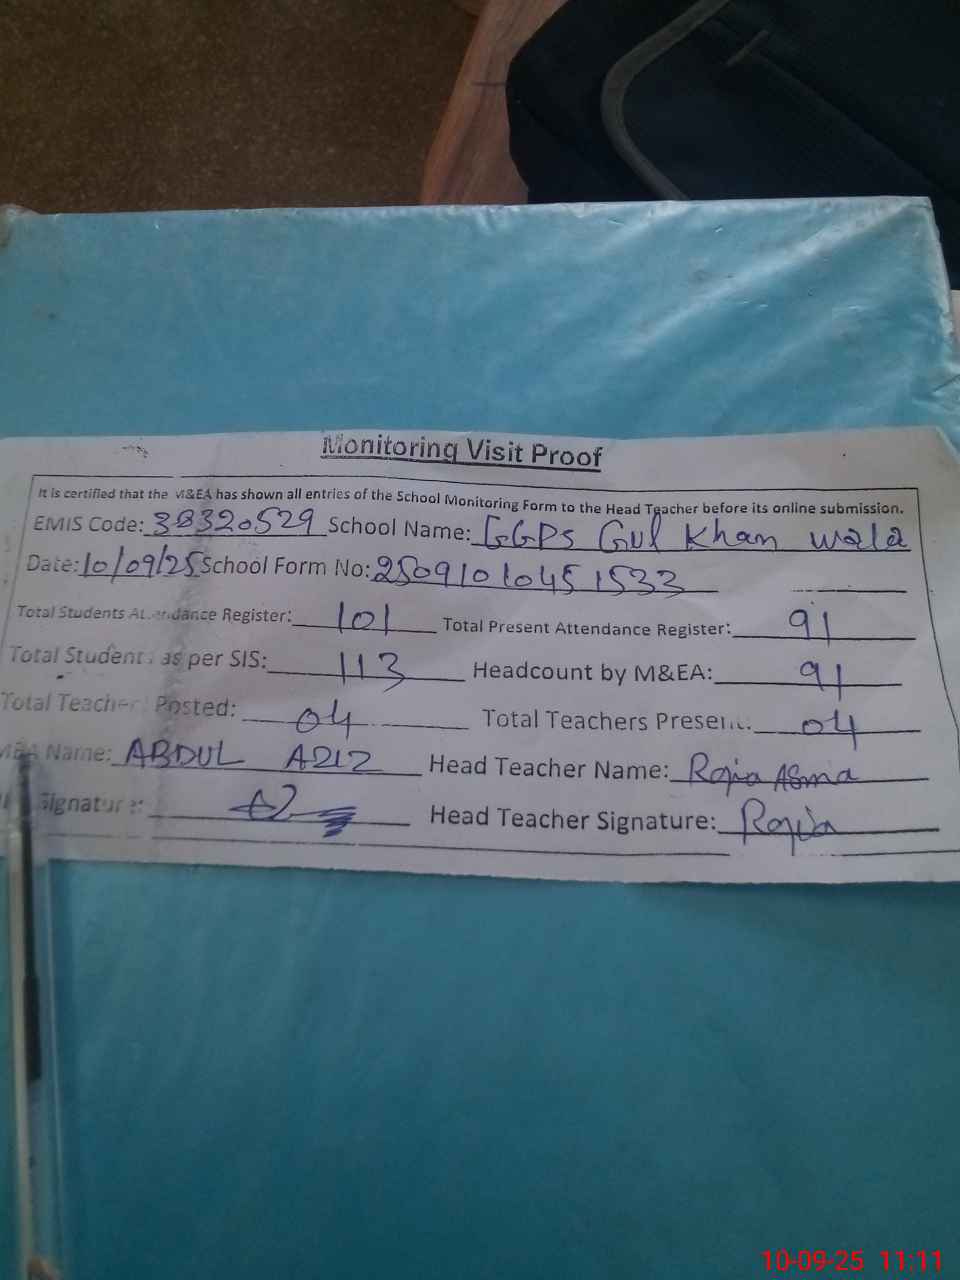 Monitoring Visit Proof
It is certified that the M&EA has shown all entries of the School Monitoring Form to the Head Teacher before its online submission.
EMIS Code: 38320529 School Name: GGPS Gul Khan Wala
Date: 10/09/25 School Form No: 25091010451533
Total Students Attendance Register: 101 Total Present Attendance Register: 91
Total Students as per SIS: 113 Headcount by M&EA: 91
Total Teacher Posted: 04 Total Teachers Present: 04
Name: ABDUL AZIZ Head Teacher Name: Asma
Signature: Head Teacher Signature:
10-09-25 11:11